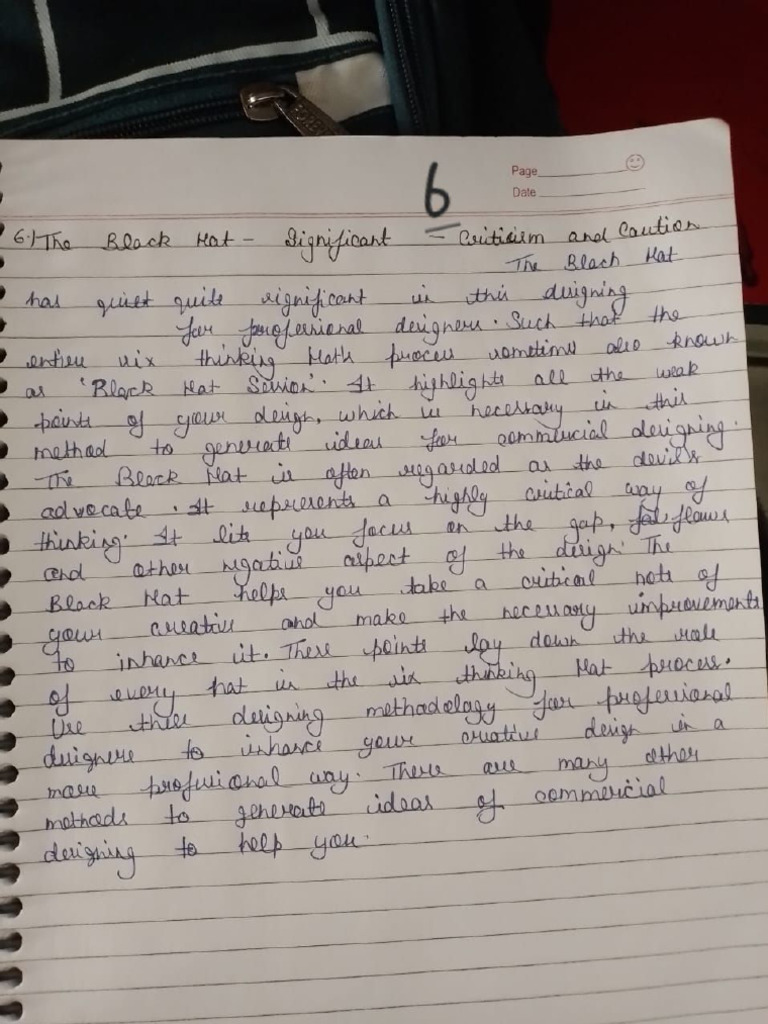 6
Page
Date
6.) The Black Hat - Significant - Criticism and Caution
The Black Hat
has quite significant in this designing
for professional designers. Such that the
entire six thinking Hath process sometimes also known
as 'Black Hat Session'. It highlights all the weak
points of your design, which is necessary in this
method to generate ideas for commercial designing.
The Black Hat is often regarded as the devil's
advocate. It represents a highly critical way of
thinking. It lets you focus on the gap, flaws
and other negative aspect of the design. The
Black Hat helps you take a critical note of
your creative and make the necessary improvements
to inhance it. These points lay down the role
of every hat in the six thinking Hat process.
Use these designing methodology for professional
designers to inhance your creative design in a
more professional way. There are many other
methods to generate ideas of commercial
designing to help you.